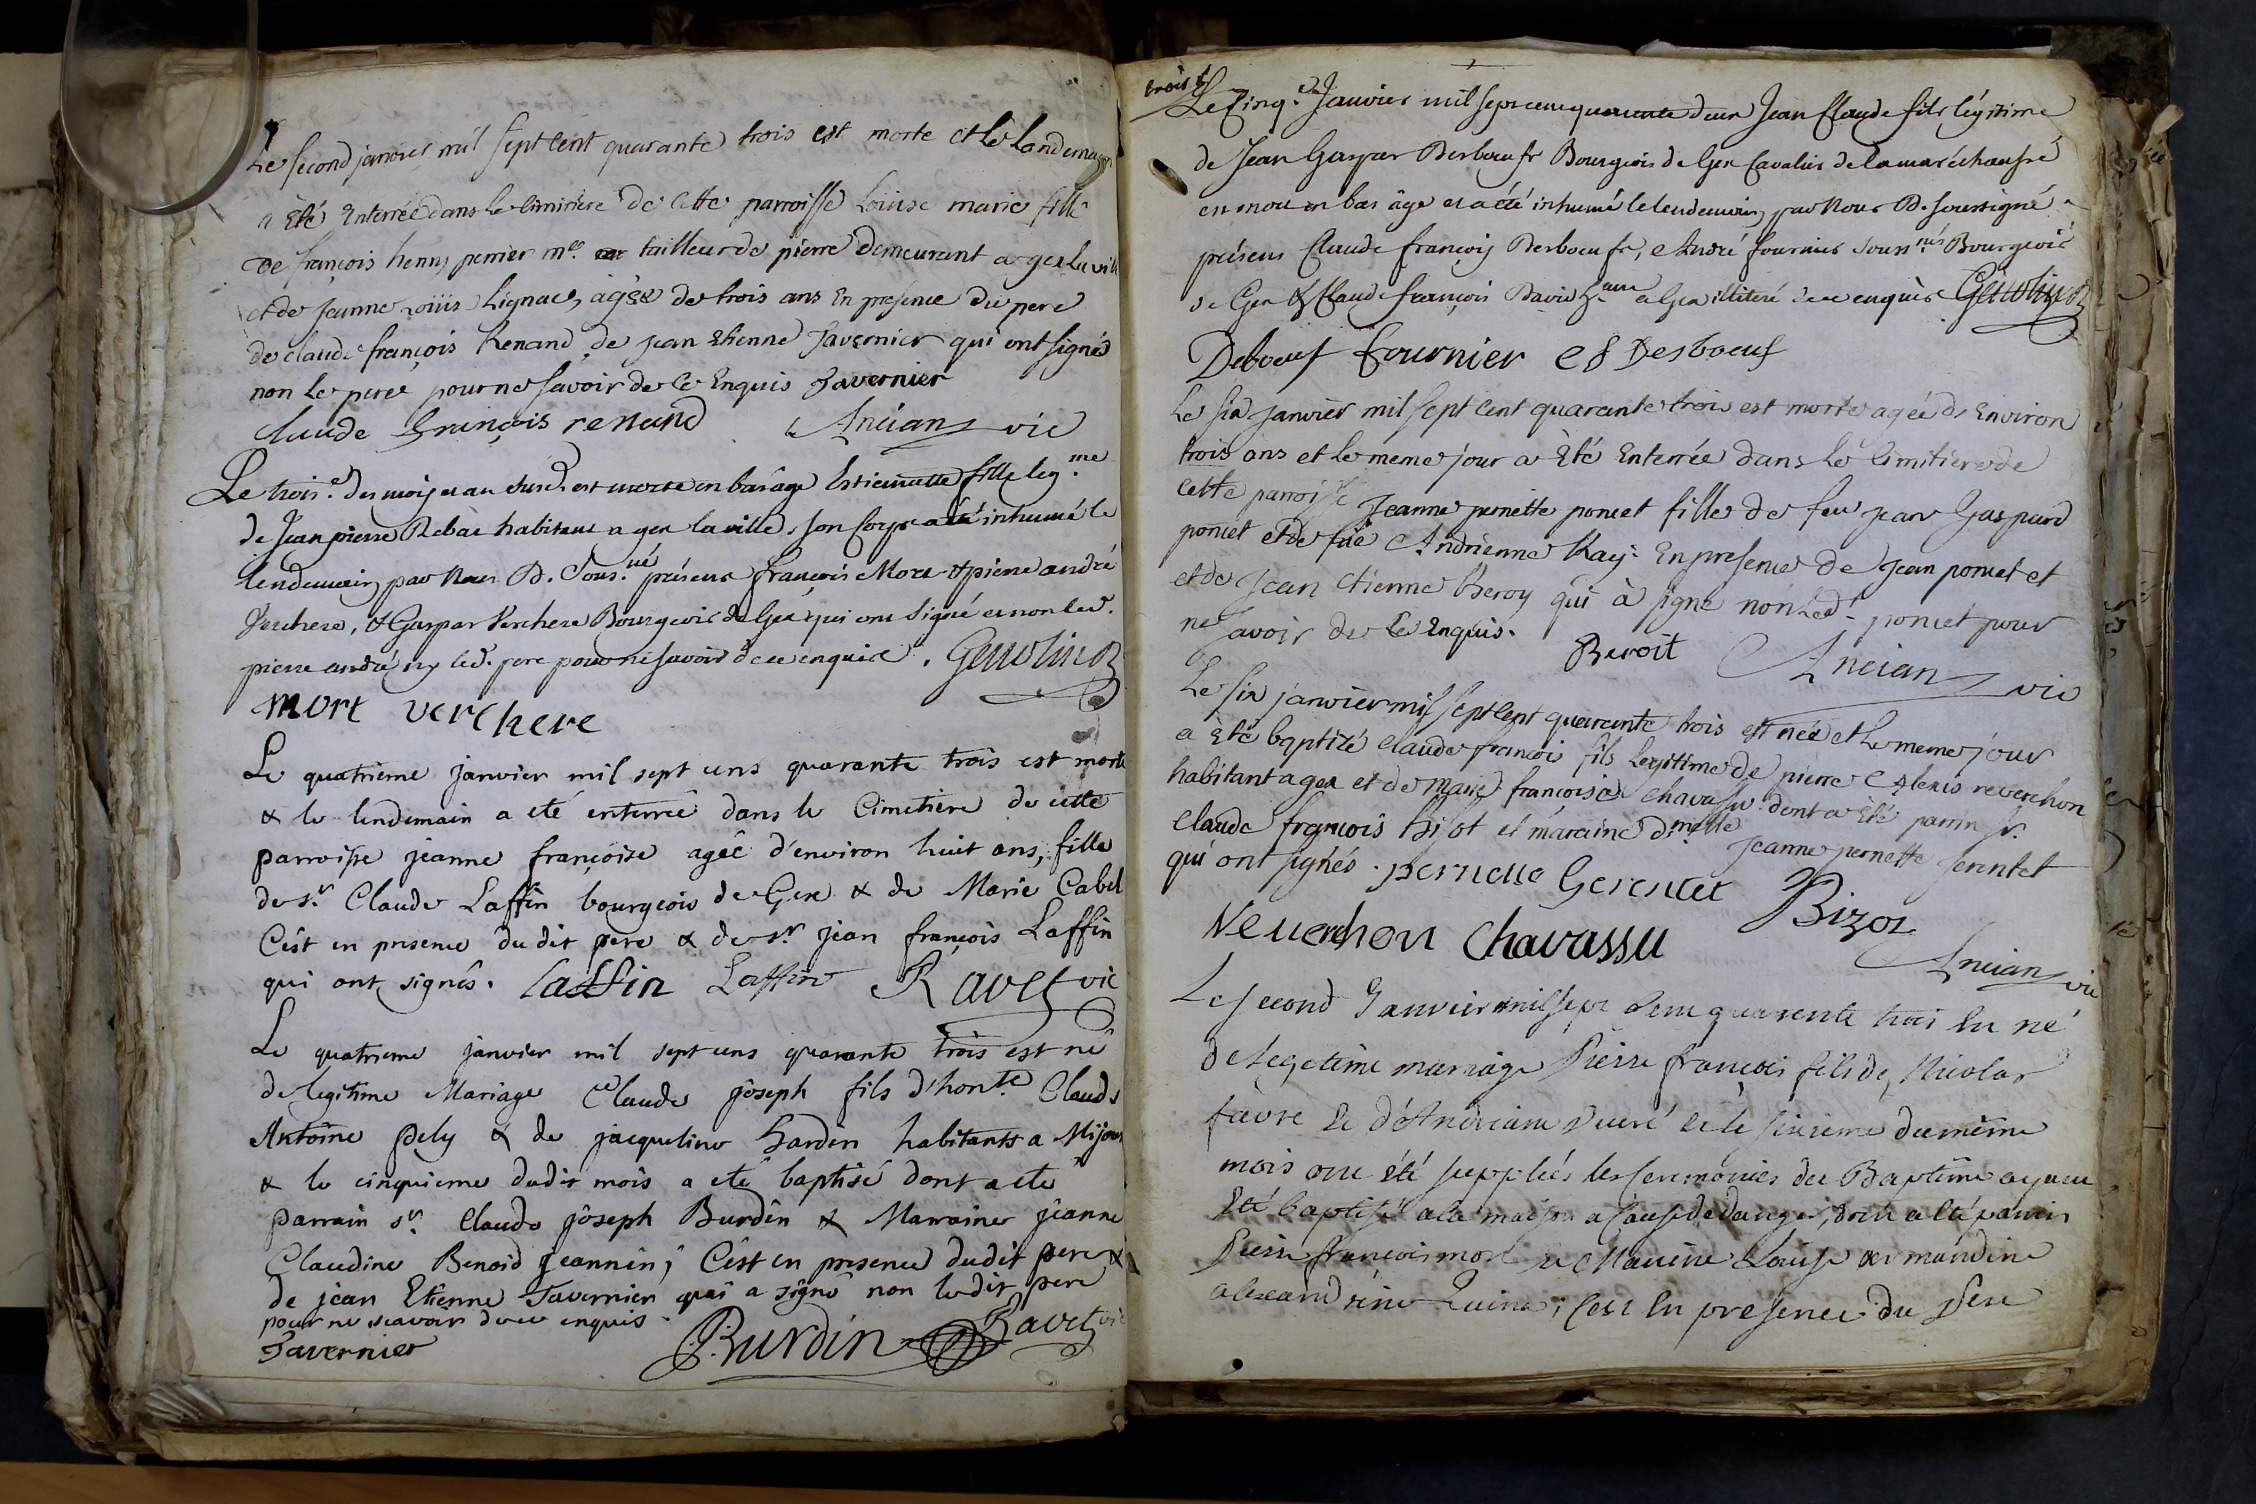 Le second janvier mil sept cent quarante trois est morte et le landemain
a Eté Enterrée dans le cimitiere de cette parroisse Loüise marie fille
de françois henry perrier me. tailleur de pierre demeurant a gex la ville
et de Jeanne Loüis Lignac, agée de trois ans En presence du pere
de claude françois Renand de jean Etienne Tavernier qui ont signés
non le pere pour ne savoir de ce Enquis Tavernier
Claude françois renand Ancian vic
Le trois.e des mois et an susd. est morte en bas âge Estiennette fille leg.me
de Jean pierre Rebac habitant a gex la ville, son Corps a été inhumé le
lendemain par Nous B. Sous.né présens françois More & pierre andré
Verchere, & Gaspar Verchere Bourgeois de Gex qui ont signé et non led.
pierre andré ny led. pere pour ne savoir de ce enquise. Genolin
mort verchere
Le quatrieme janvier mil sept cens quarante trois est morte
& le lendemain a eté enterrée dans le Cimetiere de cette
parroisse jeanne françoise agée d'environ huit ans, fille
de sr. Claude Laffin bourgeois de Gex & de Marie Cabet
C'est en presence du dit pere & de sr. jean françois Laffin
qui ont signés. Laffin Laffin Ravet vic
Le quatrieme janvier mil sept cens quarante trois est né
de legitime Mariage Claude joseph fils d'honte. Claude
Antoine Pely & de jacqueline hardin habitants a Mijoux
& le cinquieme dudit mois a eté baptisé dont a eté
parrain sr. Claude joseph Burdin & Marraine jeanne
Claudine Benoid jeannin; C'est en presence dudit pere &
de jean Etienne Tavernier qui a signé non ledit pere
pour ne sçavoir de ce enquis.
Tavernier Burdin Ravet vic
trois
Le Cinq.e Janvier mil sept cent quarante Jean Claude fils légitime
de Jean Gaspar Desboeufs Bourgeois de Gex Cavalier de la maréchaussé
est mort en bas âge et a été inhumé le lendemain par Nous B. soussigné
présens Claude françois Desboeufs, & André fournier souss.nés Bourgeois
de Gex & Claude françois David a Gex illiteré de ce enquis Genolin
Deboeuf fournier Desboeuf
Le six janvier mil sept cent quarante trois est morte agée d'Environ
trois ans et le meme jour a Eté Enterrée dans le cimitiere de
cette parroisse Jeanne pernette poncet fille de feu jean Gaspard
poncet et de fue Andrienne Ray. En presence de Jean poncet et
et de Jean Etienne Beroy qui à signé non led. poncet pour
ne savoir de ce Enquis. Benoit Ancian vic
Le six janvier mil sept cent quarante trois est née et le meme jour
a Eté baptizé claude françois fils legitime de pierre Alexis reverchon
habitant a gex et de marie françoise chavassu dont a Eté parrin sr.
claude françois bizot et maraine d.melle Jeanne pernette Jerentet
qui ont signés. pernette Gerentet Bizot
Reverchon Chavassu
Ancian vic
Le second Janvier mil sept cent quarente trois Est né
de Legetime mariage Pierre françois fils de Nicolas
favre et d'Andréane Ducré et le sixieme du même
mois ont été supplées les ceremonies du Baptême ayant
Eté Baptisé a la maison a cause de danger, dont a été parrin
Pierre françois mort et Marène Louise Armandine
alexandrine ; C'est En presence du Pere